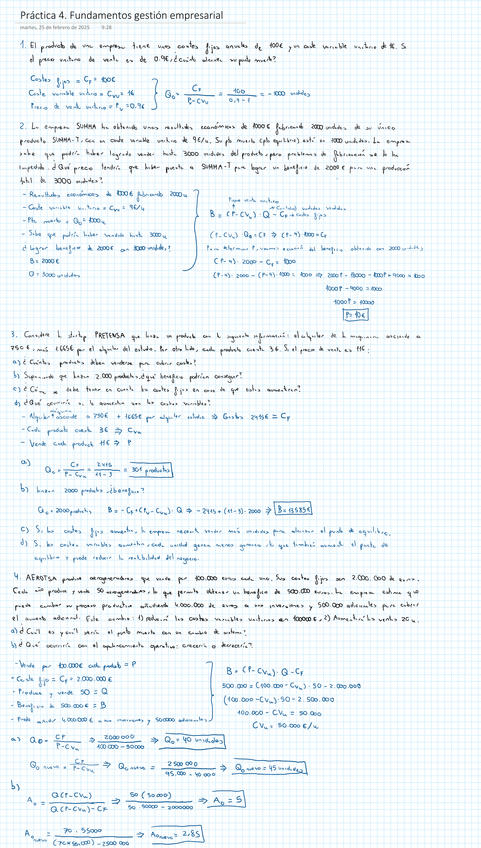 Práctica 4. Fundamentos gestión empresarial
martes, 25 de febrero de 2025 9:28
1. El producto de una empresa tiene unos costes fijos anuales de 100€ y un coste variable unitario de 1€. Si
el precio unitario de venta es de 0.9€, ¿cuándo alcanza su punto muerto?
Costes fijos = CF = 100€
Coste variable unitario = CVu = 1€
Precio de venta unitario = Pv = 0.9€
Q₀ = CF / P-CVu = 100 / 0,9-1 = -1000 unidades
2. La empresa SUMMA ha obtenido unos resultados económicos de 1000€ fabricando 2000 unidades de su único
producto SUMMA-T, con un coste variable unitario de 9€/u. Su pto muerto (pto equilibrio) está en 1000 unidades. La empresa
sabe que podría haber logrado vender hasta 3000 unidades del producto, pero problemas de fabricación se lo ha
impedido. ¿Qué precio tendría que haber puesto a SUMMA-T para lograr un beneficio de 2000€ para una producción
total de 3000 unidades?
- Resultados económicos de 1000€ fabricando 2000u
- Coste variable unitario = CVu = 9€/u
- Pto muerto = Q₀ = 1000u
- Sabe que podría haber vendido hasta 3000u
¿lograr beneficio de 2000€ con 3000 unidades?
B = 2000€
Q = 3000 unidades
B = (P-CVu) · Q - CF → costes fijos
(P-CVu) · Q₀ = CF ⇒ (P-9) · 1000 = CF
(P-9) · 2000 - CF = 1000
(P-9) · 2000 - (P-9) · 1000 = 1000 ⇒ 2000P - 18000 - 1000P + 9000 = 1000
1000P - 9000 = 1000
1000P = 10000
P = 10€
3. Considere la startup PRETENSA que hace un producto con la siguiente información: el alquiler de la maquinaria asciende a
750€, más 1665€ por el alquiler del estudio. Por otro lado, cada producto cuesta 3€. Si el precio de venta es 11€:
a) ¿Cuántos productos deben venderse para cubrir costes?
b) Suponiendo que hacen 2.000 productos, ¿qué beneficio podrían conseguir?
c) ¿Cómo se debe tener en cuenta los costes fijos en caso de que estos aumentaran?
d) ¿Qué ocurriría si lo aumentan son los costes variables?
- Alquiler máquina asciende = 750€ + 1665€ por alquiler estudio ⇒ Gastos 2415€ = CF
- Cada producto cuesta 3€ ⇒ CVu
- Vende cada producto 11€ ⇒ P
a)
Q₀ = CF / P-CVu = 2415 / 11-3 = 301 productos
b) hacen 2000 productos ¿beneficio?
Q₀ = 2000 productos B = -CF + (Pv-CVu) · Q ⇒ -2415 + (11-3) · 2000 ⇒ B = 13585€
c) Si los costes fijos aumentan, la empresa necesita vender más unidades para alcanzar el punto de equilibrio.
d) Si los costes variables aumentan, cada unidad genera menos ganancia, lo que también aumenta el punto de
equilibrio y puede reducir la rentabilidad del negocio.
4. AEROTSA produce aerogeneradores que vende por 100.000 euros cada uno. Sus costes fijos son 2.000.000 de euros.
Cada año produce y vende 50 aerogeneradores, lo que permite obtener un beneficio de 500.000 euros. La empresa estima que
puede cambiar su proceso productivo añadiendo 4.000.000 de euros a sus inversiones y 500.000 adicionales para cubrir
el aumento adicional. Este cambio: 1) reducirá los costes variables unitarios en 10000€, 2) Aumentará las ventas 20u.
a) ¿Cuál es y cuál sería el punto muerto con un cambio de sistema?
b) ¿Qué ocurriría con el apalancamiento operativo: crecería o decrecería?
- Vende por 100.000€ cada producto = P
- Coste fijo = CF = 2.000.000€
- Produce y vende 50 = Q
- Beneficio de 500.000€ = B
- Puede añadir 4.000.000€ a sus inversiones y 500000 adicionales
B = (P-CVu) · Q - CF
500.000 = (100.000-CVu) · 50 - 2.000.000
(100.000-CVu) · 50 = 2.500.000
100.000 - CVu = 50.000
CVu = 50.000€/u
a) Q₀ = CF / P-CVu ⇒ 2000000 / 100.000-50000 ⇒ Q₀ = 40 unidades
Q₀ nuevo = CF / P-CVu ⇒ Q₀ nuevo = 2500000 / 95.000-40.000 ⇒ Q₀ nuevo = 45 unidades
b)
A₀ = Q(P-CVu) / Q(P-CVu)-CF ⇒ 50(50.000) / 50·50000-2000000 ⇒ A₀ = 5
A₀ nuevo = 70·55000 / (70·55.000)-2500000 ⇒ A₀ nuevo = 2,85